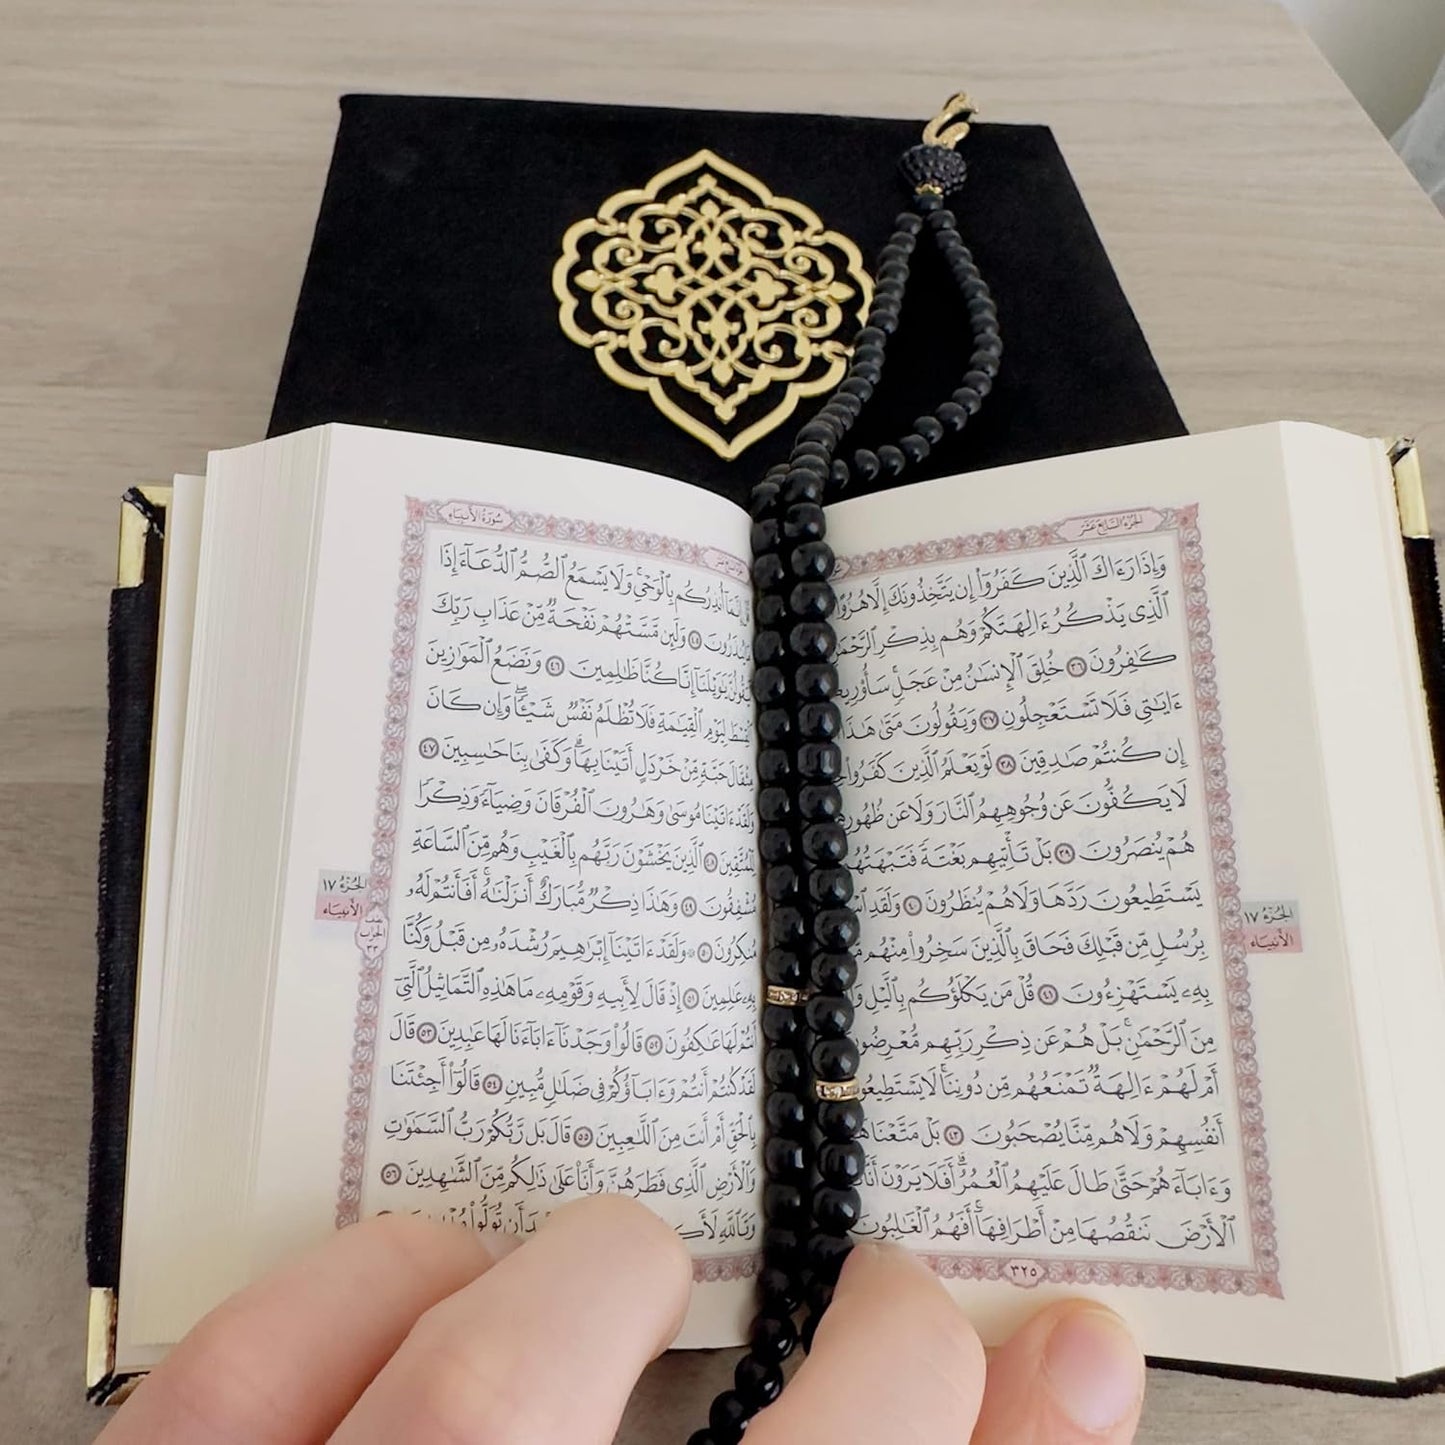 الجزء السابع عشر
وَإِذَا رَءَاكَ ٱلَّذِينَ كَفَرُوٓا۟ إِن يَتَّخِذُونَكَ إِلَّا هُزُوًا
ٱلَّذِى يَذْكُرُ ءَالِهَتَكُمْ وَهُم بِذِكْرِ ٱلرَّحْمَٰنِ
كَٰفِرُونَ ٣٦ خُلِقَ ٱلْإِنسَٰنُ مِنْ عَجَلٍ سَأُو۟رِيكُمْ
ءَايَٰتِى فَلَا تَسْتَعْجِلُونِ ٣٧ وَيَقُولُونَ مَتَىٰ هَٰذَا
إِن كُنتُمْ صَٰدِقِينَ ٣٨ لَوْ يَعْلَمُ ٱلَّذِينَ كَفَرُوا۟
لَا يَكُفُّونَ عَن وُجُوهِهِمُ ٱلنَّارَ وَلَا عَن ظُهُورِهِمْ
هُمْ يُنصَرُونَ ٣٩ بَلْ تَأْتِيهِم بَغْتَةً فَتَبْهَتُهُمْ
يَسْتَطِيعُونَ رَدَّهَا وَلَا هُمْ يُنظَرُونَ ٤٠ وَلَقَدِ
بِرُسُلٍ مِّن قَبْلِكَ فَحَاقَ بِٱلَّذِينَ سَخِرُوا۟ مِنْهُم
بِهِۦ يَسْتَهْزِءُونَ ٤١ قُلْ مَن يَكْلَؤُكُم بِٱلَّيْلِ
مِنَ ٱلرَّحْمَٰنِ ۗ بَلْ هُمْ عَن ذِكْرِ رَبِّهِم مُّعْرِضُونَ
أَمْ لَهُمْ ءَالِهَةٌ تَمْنَعُهُم مِّن دُونِنَا ۚ لَا يَسْتَطِيعُونَ
أَنفُسِهِمْ وَلَا هُم مِّنَّا يُصْحَبُونَ ٤٣ بَلْ مَتَّعْنَا
وَءَابَآءَهُمْ حَتَّىٰ طَالَ عَلَيْهِمُ ٱلْعُمُرُ ۗ أَفَلَا يَرَوْنَ أَنَّا
ٱلْأَرْضَ نَنقُصُهَا مِنْ أَطْرَافِهَآ ۚ أَفَهُمُ ٱلْغَٰلِبُونَ
٣٢٥
الجزء ١٧
الأنبياء
سورة الأنبياء
قُلْ إِنَّمَآ أُنذِرُكُم بِٱلْوَحْىِ ۚ وَلَا يَسْمَعُ ٱلصُّمُّ ٱلدُّعَآءَ إِذَا
يُنذَرُونَ ٤٥ وَلَئِن مَّسَّتْهُمْ نَفْحَةٌ مِّنْ عَذَابِ رَبِّكَ
لَيَقُولُنَّ يَٰوَيْلَنَآ إِنَّا كُنَّا ظَٰلِمِينَ ٤٦ وَنَضَعُ ٱلْمَوَٰزِينَ
ٱلْقِسْطَ لِيَوْمِ ٱلْقِيَٰمَةِ فَلَا تُظْلَمُ نَفْسٌ شَيْـًٔا ۖ وَإِن كَانَ
مِثْقَالَ حَبَّةٍ مِّنْ خَرْدَلٍ أَتَيْنَا بِهَا ۗ وَكَفَىٰ بِنَا حَٰسِبِينَ ٤٧
وَلَقَدْ ءَاتَيْنَا مُوسَىٰ وَهَٰرُونَ ٱلْفُرْقَانَ وَضِيَآءً وَذِكْرًا
لِّلْمُتَّقِينَ ٤٨ ٱلَّذِينَ يَخْشَوْنَ رَبَّهُم بِٱلْغَيْبِ وَهُم مِّنَ ٱلسَّاعَةِ
مُشْفِقُونَ ٤٩ وَهَٰذَا ذِكْرٌ مُّبَارَكٌ أَنزَلْنَٰهُ ۚ أَفَأَنتُمْ لَهُۥ
مُنكِرُونَ ٥٠ ۞ وَلَقَدْ ءَاتَيْنَآ إِبْرَٰهِيمَ رُشْدَهُۥ مِن قَبْلُ وَكُنَّا
بِهِۦ عَٰلِمِينَ ٥١ إِذْ قَالَ لِأَبِيهِ وَقَوْمِهِۦ مَا هَٰذِهِ ٱلتَّمَاثِيلُ ٱلَّتِىٓ
أَنتُمْ لَهَا عَٰكِفُونَ ٥٢ قَالُوا۟ وَجَدْنَآ ءَابَآءَنَا لَهَا عَٰبِدِينَ ٥٣ قَالَ
لَقَدْ كُنتُمْ أَنتُمْ وَءَابَآؤُكُمْ فِى ضَلَٰلٍ مُّبِينٍ ٥٤ قَالُوٓا۟ أَجِئْتَنَا
بِٱلْحَقِّ أَمْ أَنتَ مِنَ ٱللَّٰعِبِينَ ٥٥ قَالَ بَل رَّبُّكُمْ رَبُّ ٱلسَّمَٰوَٰتِ
وَٱلْأَرْضِ ٱلَّذِى فَطَرَهُنَّ وَأَنَا۠ عَلَىٰ ذَٰلِكُم مِّنَ ٱلشَّٰهِدِينَ ٥٦
وَتَٱللَّهِ أَن تُوَلُّوا۟
الجزء ١٧
الأنبياء
الحزب
٣٣